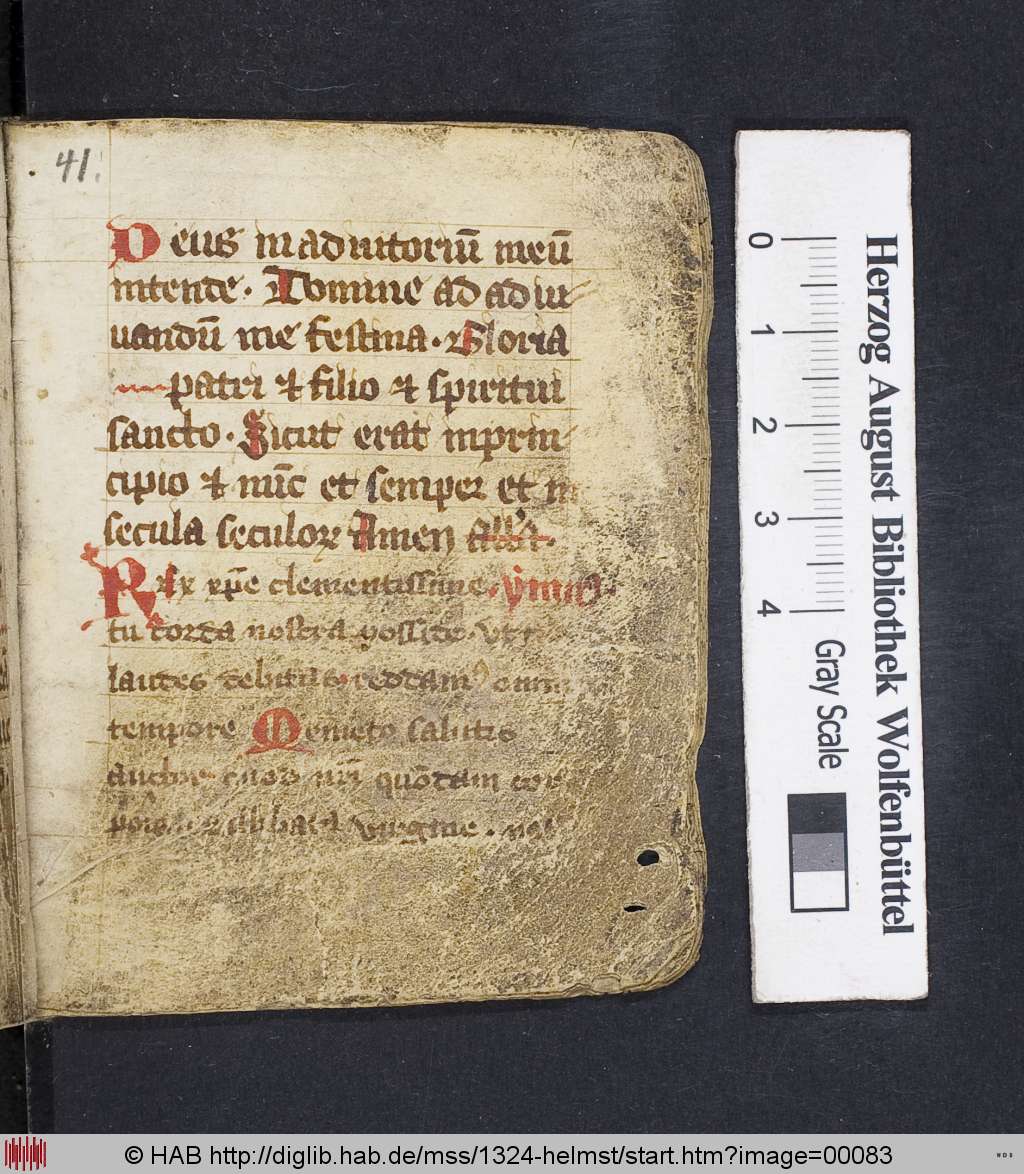 41.
Deus in adiutoriū meū
intende. Domine ad adiu
uandū me festina. Gloria
patri et filio et spiritui
sancto. Sicut erat inprin
cipio et nūc et semper et in
secula seculorꝝ Amen all'a.
Rex xp̄e clementissime. ẏmnus.
tu corda nostra posside. vt
laudes debitas reddamꝰ omni
tempore Memēto salutis
auctor quod nr̄i quōdam cor
poris ex illibata virgine. nas
0
1
2
3
4
Gray Scale
Herzog August Bibliothek Wolfenbüttel
© HAB http://diglib.hab.de/mss/1324-helmst/start.htm?image=00083